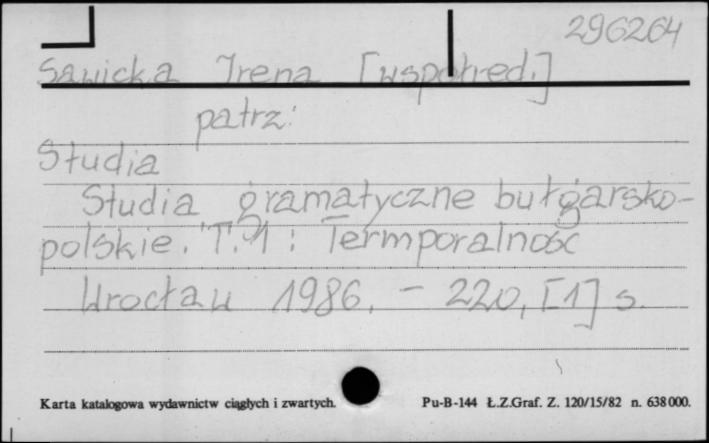 296264
Sawicka Irena [współred.]
patrz:
Studia
Studia gramatyczne bułgarsko-
polskie. T. 1 : Termporalność
Wrocław 1986. - 220, [1] s.
Karta katalogowa wydawnictw ciągłych i zwartych. Pu-B-144 Ł.Z.Graf. Z. 120/15/82 n. 638000.